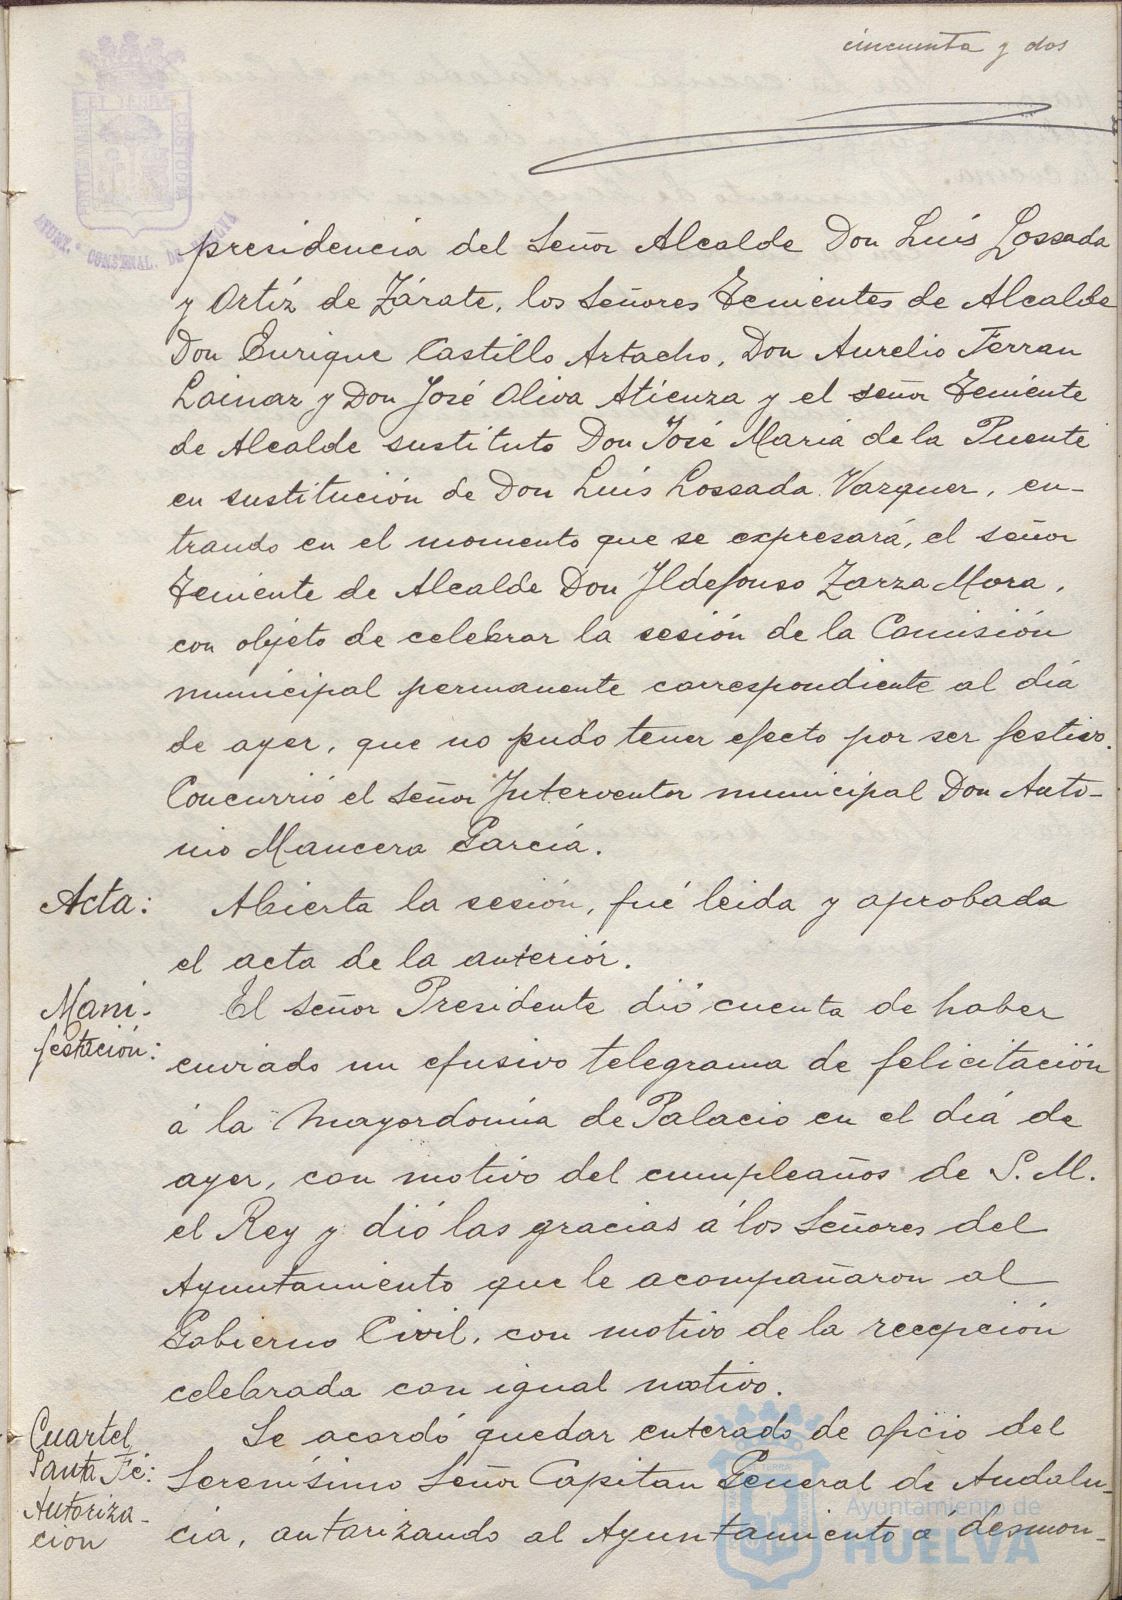 cincuenta y dos
presidencia del Señor Alcalde Don Luís Lossada
y Ortíz de Zárate, los Señores Tenientes de Alcalde
Don Enrique Castillo Artacho, Don Aurelio Ferran
Lainaz y Don José Oliva Atienza y el señor Teniente
de Alcalde sustituto Don José Mariá de la Puente
en sustitución de Don Luís Lossada Vazquez, en-
trando en el momento que se expresará, el señor
Teniente de Alcalde Don Ildefonso Zarza Mora,
con objeto de celebrar la sesión de la Comisión
municipal permanente correspondiente al diá
de ayer, que no pudo tener efecto por ser festivo.
Concurrió el Señor Interventor municipal Don Anto-
nio Mancera García.
Acta: Abierta la sesión, fué leida y aprobada
el acta de la anteriór.
Mani-
festación: El Señor Presidente dió cuenta de haber
enviado un efusivo telegrama de felicitación
á la Mayordomía de Palacio en el diá de
ayer, con motivo del cumpleaños de S. M.
el Rey y dió las gracias á los Señores del
Ayuntamiento que le acompañaron al
Gobierno Civil, con motivo de la recepción
celebrada con igual motivo.
Cuartel
Santa Fé:
Autoriza-
cion
Se acordó quedar enterado de oficio del
Serenísimo Señor Capitan General de Andalu-
cia, autorizando al Ayuntamiento á desmon-
AYUNT.
Ayuntamiento de
HUELVA